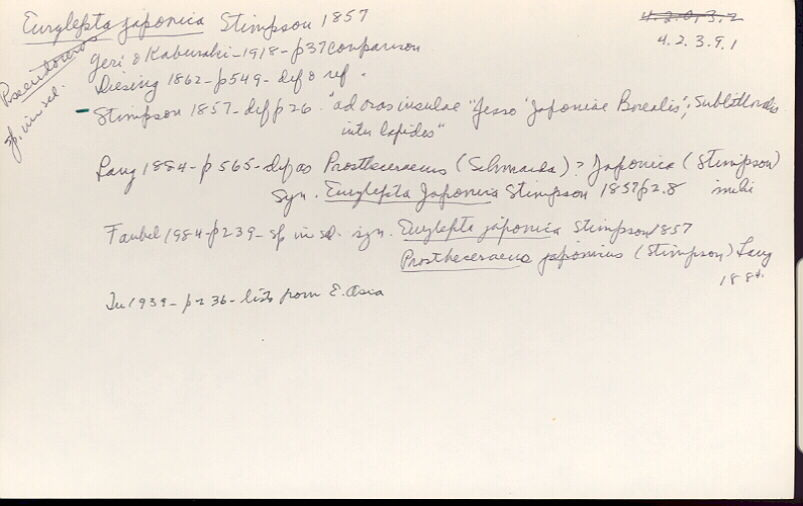 Eurylepta japonica Stimpson 1857
4.2.0.3.2
4.2.3.9.1
sp. in sed.
Yeri & Kaburaki - 1918 - p37 comparison
Diesing 1862 - p549 - def & ref.
- Stimpson 1857 - def p26. "ad oras insulae "Jesso" Japoniae Borealis"; Sublittoralis
inter lapides"
Lang 1884 - p565 - def as Prostheceraeus (Schmarda)? Japonica (Stimpson)
Syn. Eurylepta Japonica Stimpson 1857 p2.8 mihi
Faubel 1984 - p239 - sp in sed. syn. Eurylepta japonica Stimpson 1857
Prostheceraeus japonicus (Stimpson) Lang
1884.
Tu 1939 - p236 - lists from E. Asia